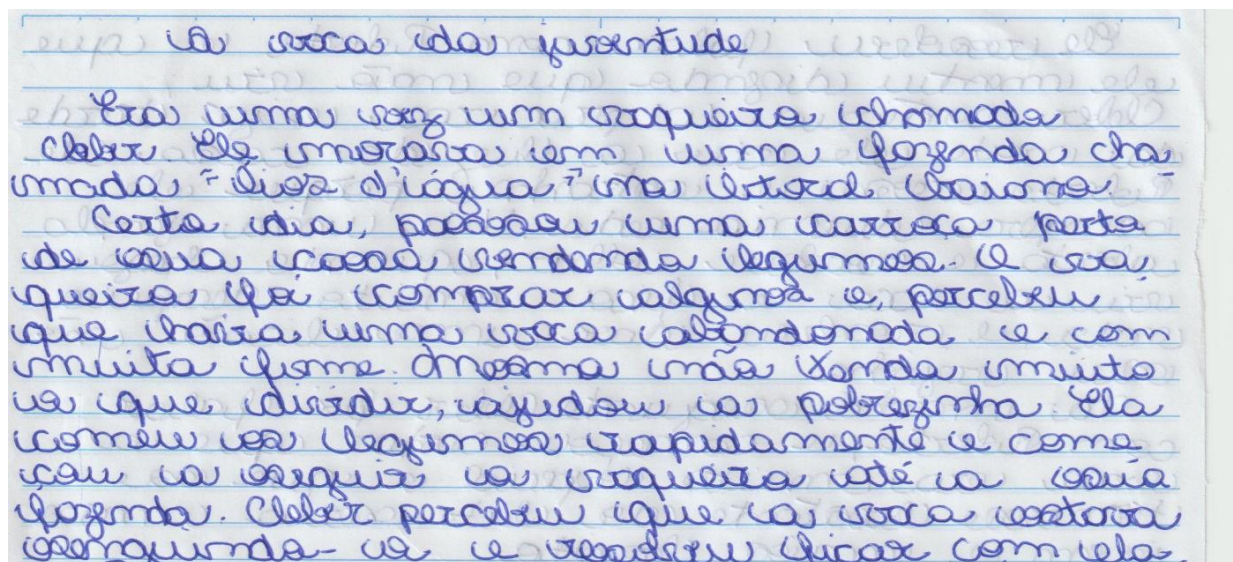 A vaca da juventude
Era uma vez um vaqueiro chamado
Cleber. Ele morava em uma fazenda cha
mada "Luoz d'água" no litoral baiano.
Certo dia, passou uma carroça perto
de sua casa vendendo legumes. O va
queiro foi comprar alguns e, percebeu
que havia uma vaca abandonada e com
muita fome. Mesmo não tendo muito
o que dividir, ajudou a pobrezinha. Ela
comeu os legumes rapidamente e come
çou a seguir o vaqueiro até a sua
fazenda. Cleber percebeu que a vaca estava
seguindo-o e resolveu ficar com ela.